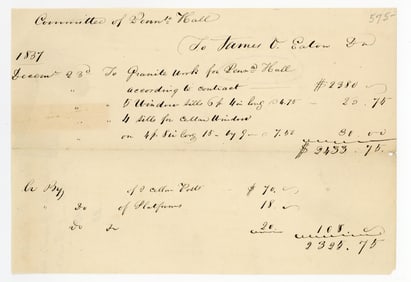 Committee of Penna. Hall
595
To James O. Eaton Dr
1837
Decem 23d To Granite Work for Penna. Hall
" according to contract $2380
" 5 Window Sills 5 ft 4 in long @ 4.75 23.75
" 4 sills for Cellar Window
on 4 ft 8 in long 18 by 9 @ 7.50 30 00
$2433.75
Cr By of 2 Cellar $70.
" Do of Platforms 18.
Do 20 108
2325.75